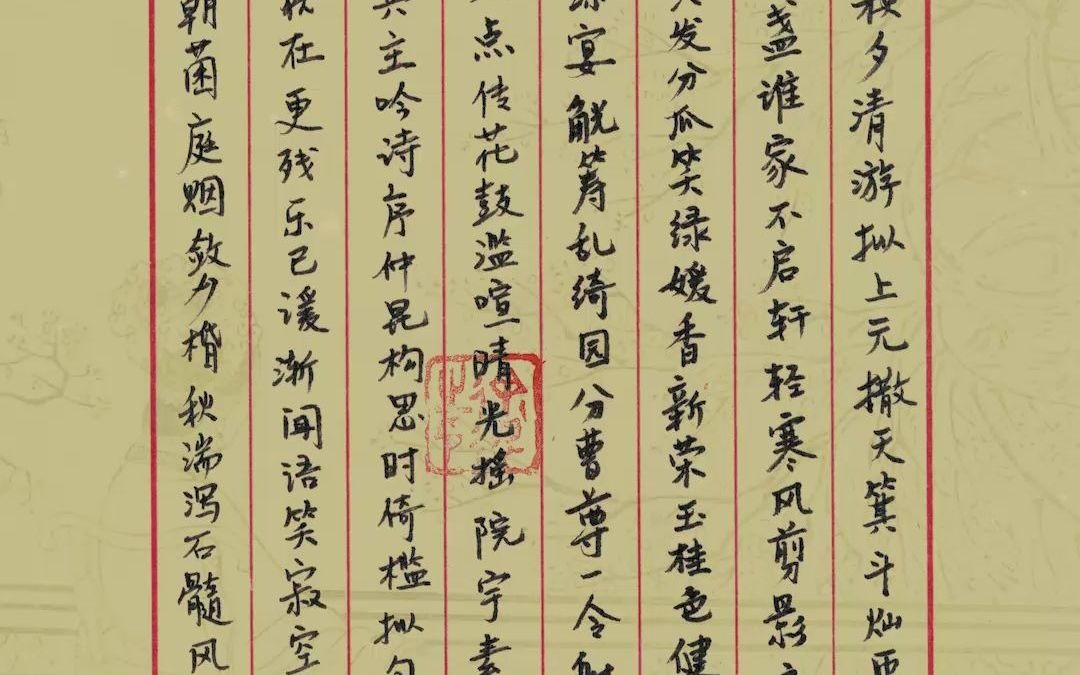 秋夕清游拟上元撒天箕斗灿匝
盏谁家不启轩轻寒风剪影
发分瓜笑绿媛香新荣玉桂色健
宴觥筹乱绮园分曹尊一令
点传花鼓滥喧晴光摇院宇素
主吟诗序仲昆构思时倚槛拟句
在更残乐已谖渐闻语笑寂空
朝菌庭烟敛夕棔秋湍泻石髓风